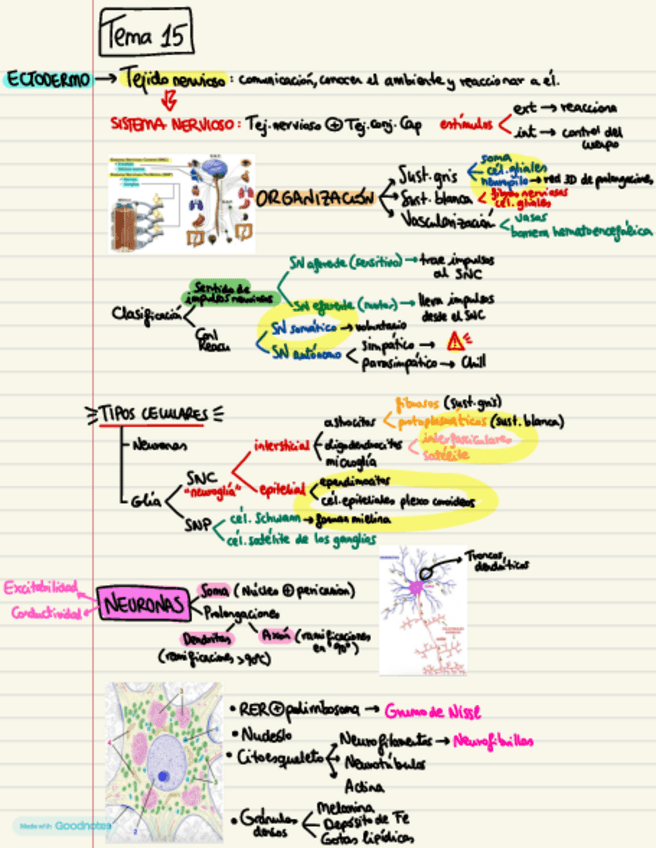 Tema 15
ECTODERMO → Tejido nervioso: comunicación, conocer el ambiente y reaccionar a él.
SISTEMA NERVIOSO: Tej. nervioso ⊕ Tej. conj. Cap
estímulos
ext → reacciona
int → control del cuerpo
ORGANIZACIÓN
Sust. gris
soma
cél. gliales
neuropilo → red 3D de prolongaciones
Sust. blanca
fibras nerviosas
cél. gliales
Vascularización
vasos
barrera hematoencefálica
Clasificación
Sentido de
impulsos nerviosos
SN aferente (sensitivo) → trae impulsos
al SNC
SN eferente (motor) → lleva impulsos
desde el SNC
SN somático → voluntario
SN autónomo
simpático →
parasimpático → Chill
TIPOS CELULARES
Neuronas
Glía
SNC
"neuroglía"
intersticial
astrocitos
fibrosos (sust. gris)
protoplasmáticos (sust. blanca)
oligodendrocitos
interfasciculares
satélite
microglía
epitelial
ependimocitos
cél. epiteliales plexo coroideos
SNP
cél. Schwann → forman mielina
cél. satélite de los ganglios
Excitabilidad
Conductividad
NEURONAS
Soma (Núcleo ⊕ pericarion)
Prolongaciones
Dendritas
(ramificaciones >90ºC)
Axón (ramificaciones
en 90º)
Troncos
dendríticos
• RER ⊕ polirribosoma → Grumo de Nissl
• Nucleolo
• Citoesqueleto
Neurofilamentos → Neurofibrillas
Neurotúbulos
Actina
• Gránulos
densos
Melanina
Depósito de Fe
Gotas lipídicas
Made with Goodnotes